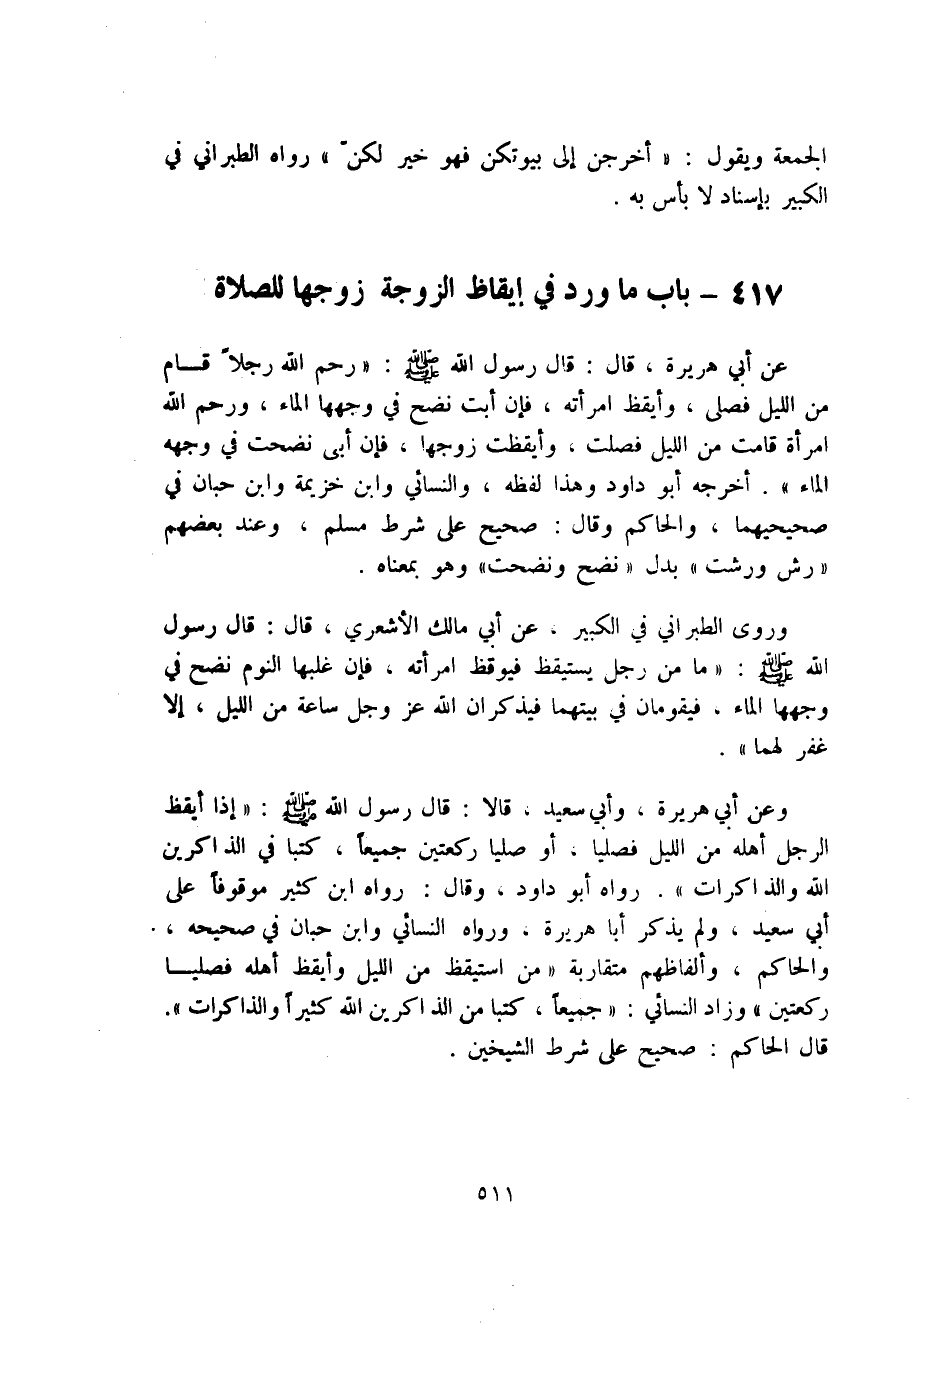 الجمعة ويقول : « أخرجن إلى بيوتكن فهو خير لكنّ » رواه الطبراني في
الكبير بإسناد لا بأس به .
٤١٧ – باب ما ورد في إيقاظ الزوجة زوجها للصلاة
عن أبي هريرة ، قال : قال رسول الله ﷺ : « رحم الله رجلاً قـــام
من الليل فصلى ، وأيقظ امرأته ، فإن أبت نضح في وجهها الماء ، ورحم الله
امرأة قامت من الليل فصلت ، وأيقظت زوجها ، فإن أبى نضحت في وجهه
الماء » . أخرجه أبو داود وهذا لفظه ، والنسائي وابن خزيمة وابن حبان في
صحيحيهما ، والحاكم وقال : صحيح على شرط مسلم ، وعند بعضهم
« رش ورشت » بدل « نضح ونضحت» وهو بمعناه .
وروى الطبراني في الكبير ، عن أبي مالك الأشعري ، قال : قال رسول
الله ﷺ : « ما من رجل يستيقظ فيوقظ امرأته ، فإن غلبها النوم نضح في
وجهها الماء ، فيقومان في بيتهما فيذكران الله عز وجل ساعة من الليل ، إلا
غفر لهما » .
وعن أبي هريرة ، وأبي سعيد ، قالا : قال رسول الله ﷺ : « إذا أيقظ
الرجل أهله من الليل فصليا ، أو صليا ركعتين جميعاً ، كتبا في الذاكرين
الله والذاكرات » . رواه أبو داود ، وقال : رواه ابن كثير موقوفاً على
أبي سعيد ، ولم يذكر أبا هريرة ، ورواه النسائي وابن حبان في صحيحه ،
والحاكم ، وألفاظهم متقاربة « من استيقظ من الليل وأيقظ أهله فصليـــا
ركعتين » وزاد النسائي : « جميعاً ، كتبا من الذاكرين الله كثيراً والذاكرات ».
قال الحاكم : صحيح على شرط الشيخين .
٥١١